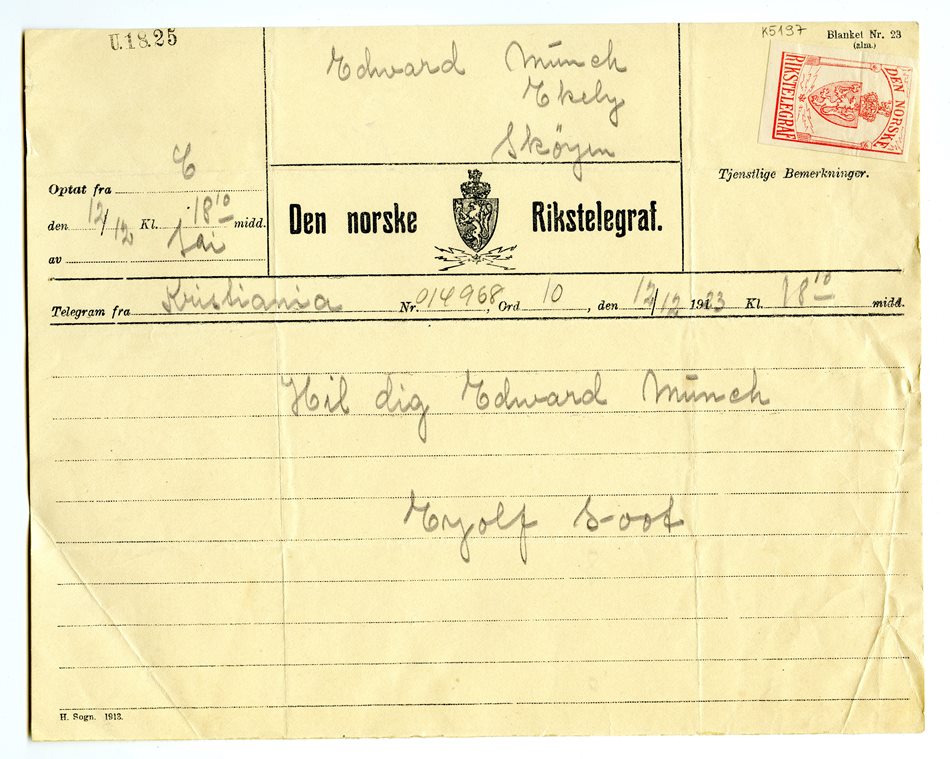 U.18.25
K5197
Blanket Nr. 23
(alm.)
Edward Münch
Ekely
Skøyen
DEN NORSKE
RIKSTELEGRAF
Tjenstlige Bemerkninger.
Optat fra C
den 12/12 Kl. 18 10 midd.
av
Den norske Rikstelegraf.
Telegram fra Kristiania Nr. 014968, Ord 10, den 12/12 1923 Kl. 18 10 midd.
Hil dig Edward Münch
Eyolf Soot
H. Sogn. 1913.